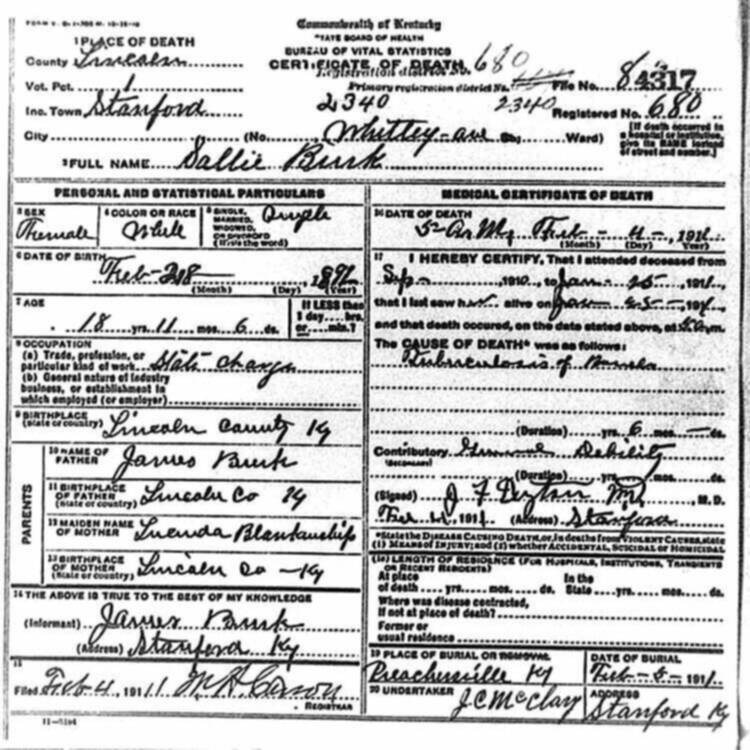 Commonwealth of Kentucky
STATE BOARD OF HEALTH
BUREAU OF VITAL STATISTICS
CERTIFICATE OF DEATH
1 PLACE OF DEATH
County Lincoln
Vot. Pct. 1
Inc. Town Stanford
City
Registration District No. 680
Primary registration district No. 2340
2340
File No. 84317
Registered No. 680
(No. Whitley-ave St; Ward)
[If death occurred in a hospital or institution, give its NAME instead of street and number.]
2 FULL NAME Sallie Burk
PERSONAL AND STATISTICAL PARTICULARS
3 SEX
4 COLOR OR RACE
5 SINGLE, MARRIED, WIDOWED, OR DIVORCED (Write the word)
Female White Single
6 DATE OF BIRTH
Feb-28 1892
(Month) (Day) (Year)
7 AGE
18 yrs. 11 mos. 6 ds.
If LESS than 1 day... hrs. or... min.?
8 OCCUPATION
(a) Trade, profession, or particular kind of work State charge
(b) General nature of industry business, or establishment in which employed (or employer)
9 BIRTHPLACE (State or country) Lincoln County Ky
PARENTS
10 NAME OF FATHER James Burk
11 BIRTHPLACE OF FATHER (State or country) Lincoln Co Ky
12 MAIDEN NAME OF MOTHER Lucinda Blankenship
13 BIRTHPLACE OF MOTHER (State or country) Lincoln Co - Ky
14 THE ABOVE IS TRUE TO THE BEST OF MY KNOWLEDGE
(Informant) James Burk
(Address) Stanford Ky
15
Filed Feb 4, 1911 REGISTRAR
11-5184
MEDICAL CERTIFICATE OF DEATH
16 DATE OF DEATH
Feb - 4 - 1911
(Month) (Day) (Year)
17 I HEREBY CERTIFY, That I attended deceased from
Sep - 1910, to Jan - 25 -, 1911
that I last saw her alive on Jan - 25 -, 1911
and that death occured, on the date stated above, at 5 a.m.
The CAUSE OF DEATH* was as follows:
Tuberculosis of Bowels
(Duration) yrs. 6 mos. - ds.
Contributory General Debility
(SECONDARY)
(Duration) yrs. mos. ds.
(Signed) J F M.D.
Feb 1911. (Address) Stanford
*State the DISEASE CAUSING DEATH, or, in deaths from VIOLENT CAUSES, state (1) MEANS OF INJURY; and (2) whether ACCIDENTAL, SUICIDAL or HOMICIDAL
18 LENGTH OF RESIDENCE (FOR HOSPITALS, INSTITUTIONS, TRANSIENTS OR RECENT RESIDENTS)
At place of death yrs. mos. ds. In the State yrs. mos. ds.
Where was disease contracted, if not at place of death?
Former or usual residence
19 PLACE OF BURIAL OR REMOVAL
Preachersville Ky
DATE OF BURIAL
Feb - 5 - 1911
20 UNDERTAKER
J.C. McClary
ADDRESS
Stanford Ky